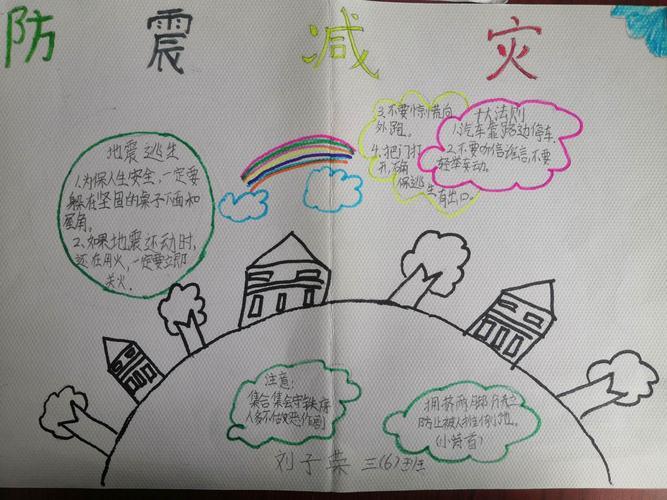 防震减灾
地震逃生
1.为保人生安全,一定要
躲在坚固的桌子下面和
屋角。
2.如果地震还动时,
还在用火,一定要立即
关火.
3.不要惊慌向
外跑。
4.把门打
开,确
保逃生有出口.
十大法则
1.汽车靠路边停车.
2.不要听信谣言,不要
轻举妄动.
注意:
集合集会守秩序
人多不怕
拥挤两脚
防止被人推倒地。
刘子荣 三(6)班